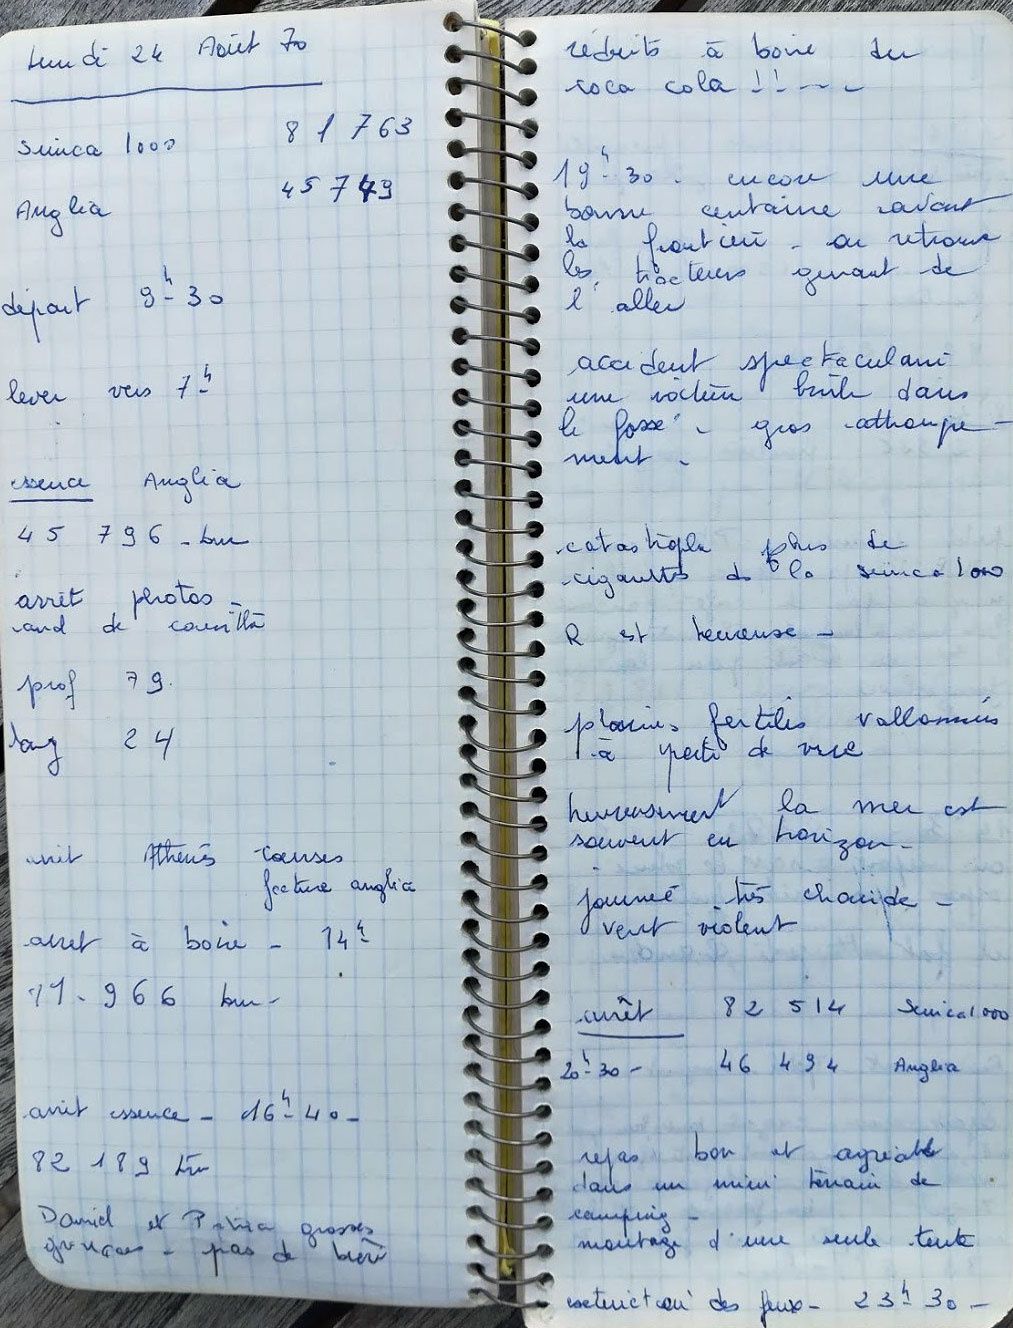 Lundi 24 Août 70
Simca 1000 81763
Anglia 45749
départ 9h 30
lever vers 7h
essence Anglia
45 796 - km
arrêt photos -
canal de corinthe
prof 79.
long 24
arrêt Athènes courses
facture anglia
arrêt à boire - 14h
966 km -
arrêt essence - 16h 40 -
82 189 km
Daniel et Patricia grosses
grimaces - pas de bière
réduits à boire du
coca cola !! - - -
19h 30 - encore une
bonne centaine avant
la frontière - on retrouve
les tracteurs genant de
l'aller
accident spectaculaire
une voiture brûle dans
le fossé - gros attroupe-
ment -
catastrophe plus de
cigarettes ds la simca 1000
R est heureuse -
plaines fertiles vallonnées
à perte de vue
heureusement la mer est
souvent en horizon -
journée très chaude -
vent violent
arrêt 82 514 Simca 1000
20h 30 - 46 494 Anglia
repas bon et agréable
dans un mini terrain de
camping -
montage d'une seule tente
extinction des feux - 23h 30 -